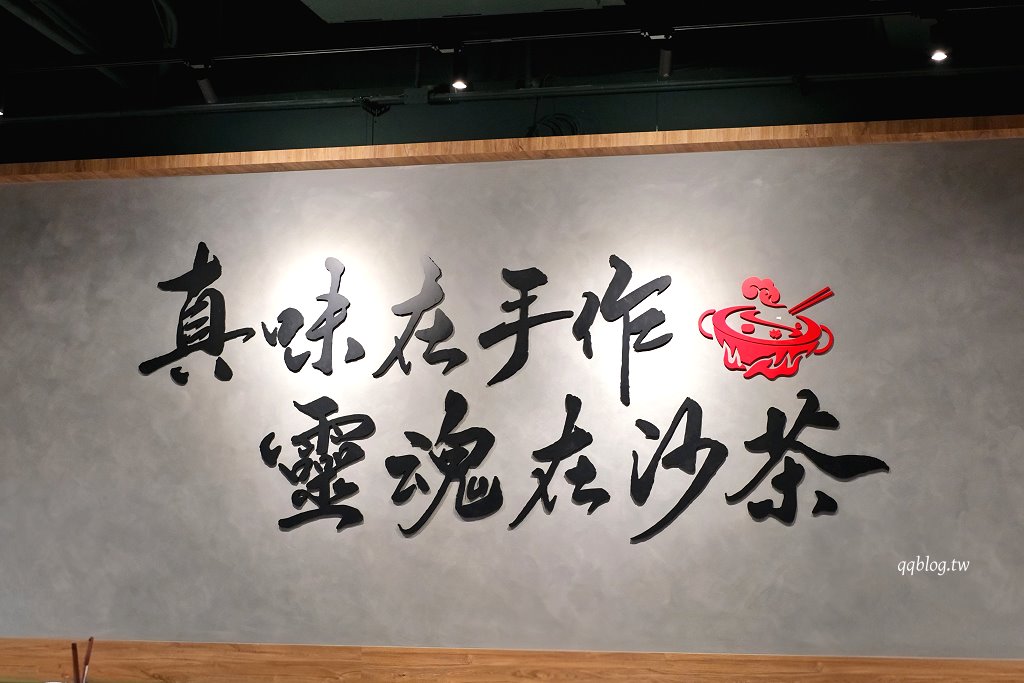 真味在手作
靈魂在沙茶
qqblog.tw